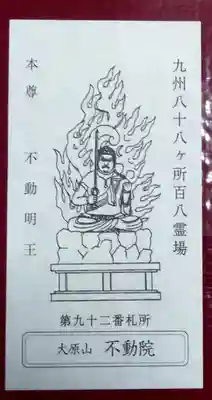 九州八十八ヶ所百八霊場
本尊 不動明王
第九十二番札所
大原山 不動院